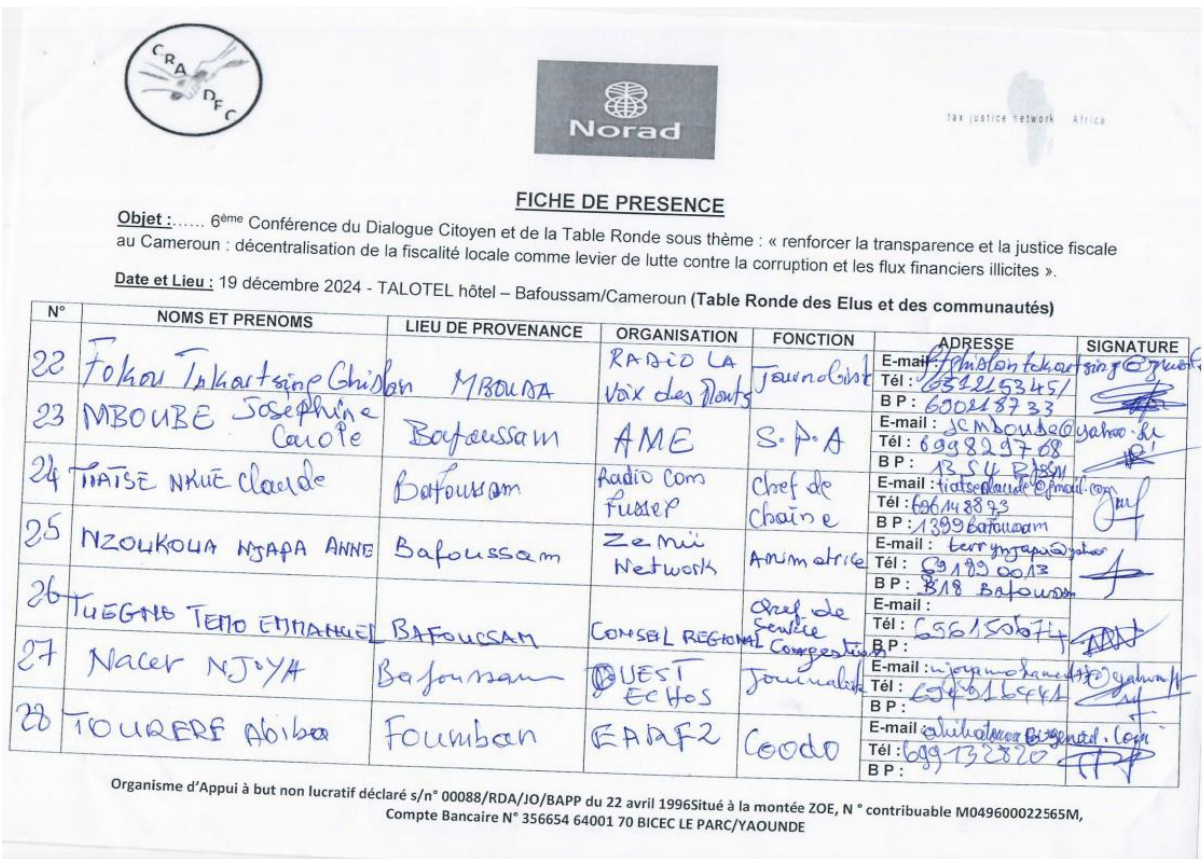 CRADEC
Norad
tax justice network Africa
FICHE DE PRESENCE
Objet :...... 6ème Conférence du Dialogue Citoyen et de la Table Ronde sous thème : « renforcer la transparence et la justice fiscale
au Cameroun : décentralisation de la fiscalité locale comme levier de lutte contre la corruption et les flux financiers illicites ».
Date et Lieu : 19 décembre 2024 - TALOTEL hôtel – Bafoussam/Cameroun (Table Ronde des Elus et des communautés)
N° NOMS ET PRENOMS LIEU DE PROVENANCE ORGANISATION FONCTION ADRESSE SIGNATURE
22 Fokou MBOUDA RADIO LA Journalist E-mail
Voix des Tél :
B P :
23 MBOUBE Josephine Bafoussam AME S.P.A E-mail : jcmboube@yahoo.fr
Carole Tél : 699829768
B P :
24 TIATSE NKUE Claude Bafoussam Radio Com Chef de E-mail : tiatseclaude@gmail.com
chaîne Tél : 696148873
B P : 1399 Bafoussam
25 NZOUKOUA NJAPA ANNE Bafoussam Network Animatrice E-mail :
Tél : 691890013
B P : B18 Bafoussam
26 TEMO EMMANUEL BAFOUSSAM CONSEIL REGIONAL Chef de E-mail :
Service Tél :
B P :
27 Nacer NJOYA Bafoussam OUEST Journaliste E-mail :
ECHOS Tél :
B P :
28 TOURERE Abiba Foumban Coodo E-mail
Tél : 699132820
B P :
Organisme d'Appui à but non lucratif déclaré s/n° 00088/RDA/JO/BAPP du 22 avril 1996Situé à la montée ZOE, N ° contribuable M049600022565M,
Compte Bancaire N° 356654 64001 70 BICEC LE PARC/YAOUNDE